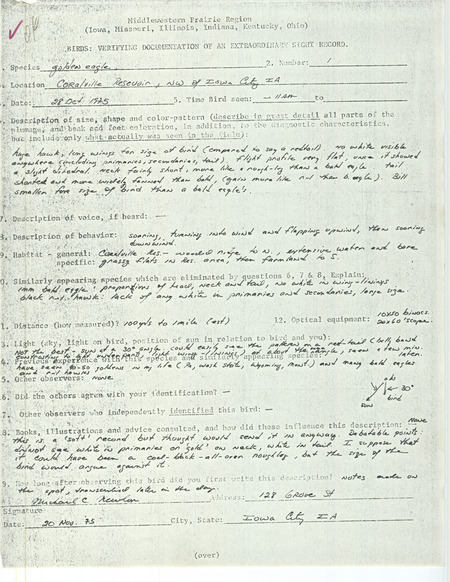 Middlewestern Prairie Region
(Iowa, Missouri, Illinois, Indiana, Kentucky, Ohio)
BIRDS: VERIFYING DOCUMENTATION OF AN EXTRAORDINARY SIGHT RECORD.
Species golden eagle 2. Number: 1
Location Coralville Resevoir, NW of Iowa City IA
Date: 28 Oct. 1975 5. Time Bird seen: ~11 AM to
Description of size, shape and color-pattern (describe in great detail all parts of the
plumage, and beak and feet coloration, in addition, to the diagnostic characteristics,
but include only what actually was seen in the field):
huge hawk, long wings for size of bird (compared to say a redtail) no white visible
anywhere (including primaries, secondaries, tail) flight profile very flat, once it showed
a slight dihedral. neck fairly short, more like a rough-leg than a bald eagle tail
shorter and more widely fanned than bald, (again more like r.l. than b. eagle). Bill
smaller for size of bird than a bald eagle's.
7. Description of voice, if heard: —
8. Description of behavior: soaring, turning into wind and flapping upwind, then soaring
downwind.
9. Habitat - general: Coralville Res- wooded ridge to N, extensive water and bare
specific: grassy flats in Res. area, then farmland to S.
0. Similarly appearing species which are eliminated by questions 6, 7 & 8, Explain:
imm bald eagle: proportions of head, neck and tail, no white in wing-linings
black r.l. hawk: lack of any white in primaries and secondaries, large size
1. Distance (how measured)? 100 yds to 1 mile (est) 12. Optical equipment: 10x50 binocs.
20x60 'scope.
3. Light (sky, light on bird, position of sun in relation to bird and you):
Not the best - sun at a 30° angle. could easily see the pattern on a red-tail (belly band
4. Previous experience with this species and similarly appearing species:
have seen 40-50 goldens in my life (Pa, Wash state, Wyoming, ) and many bald eagles
and r.l. hawks
5. Other observers: none
30°
bird
6. Did the others agree with your identification? —
7. Other observers who independently identified this bird: —
8. Books, illustrations and advice consulted, and how did these influence this description: None
this is a 'soft' record but thought would send it in anyway. Debatable points:
did not see white in primaries or 'gold' on neck, white in tail. I suppose that
it could have been a coal-black-all-over roughleg, but the size of the
bird would argue against it.
9. How long after observing this bird did you first write this description? notes made on
the spot, transcribed later in the day.
Michael C Newlon Address: 128 Grove St
Signature
Date: 20 Nov. 75 City, State: Iowa City IA
(over)